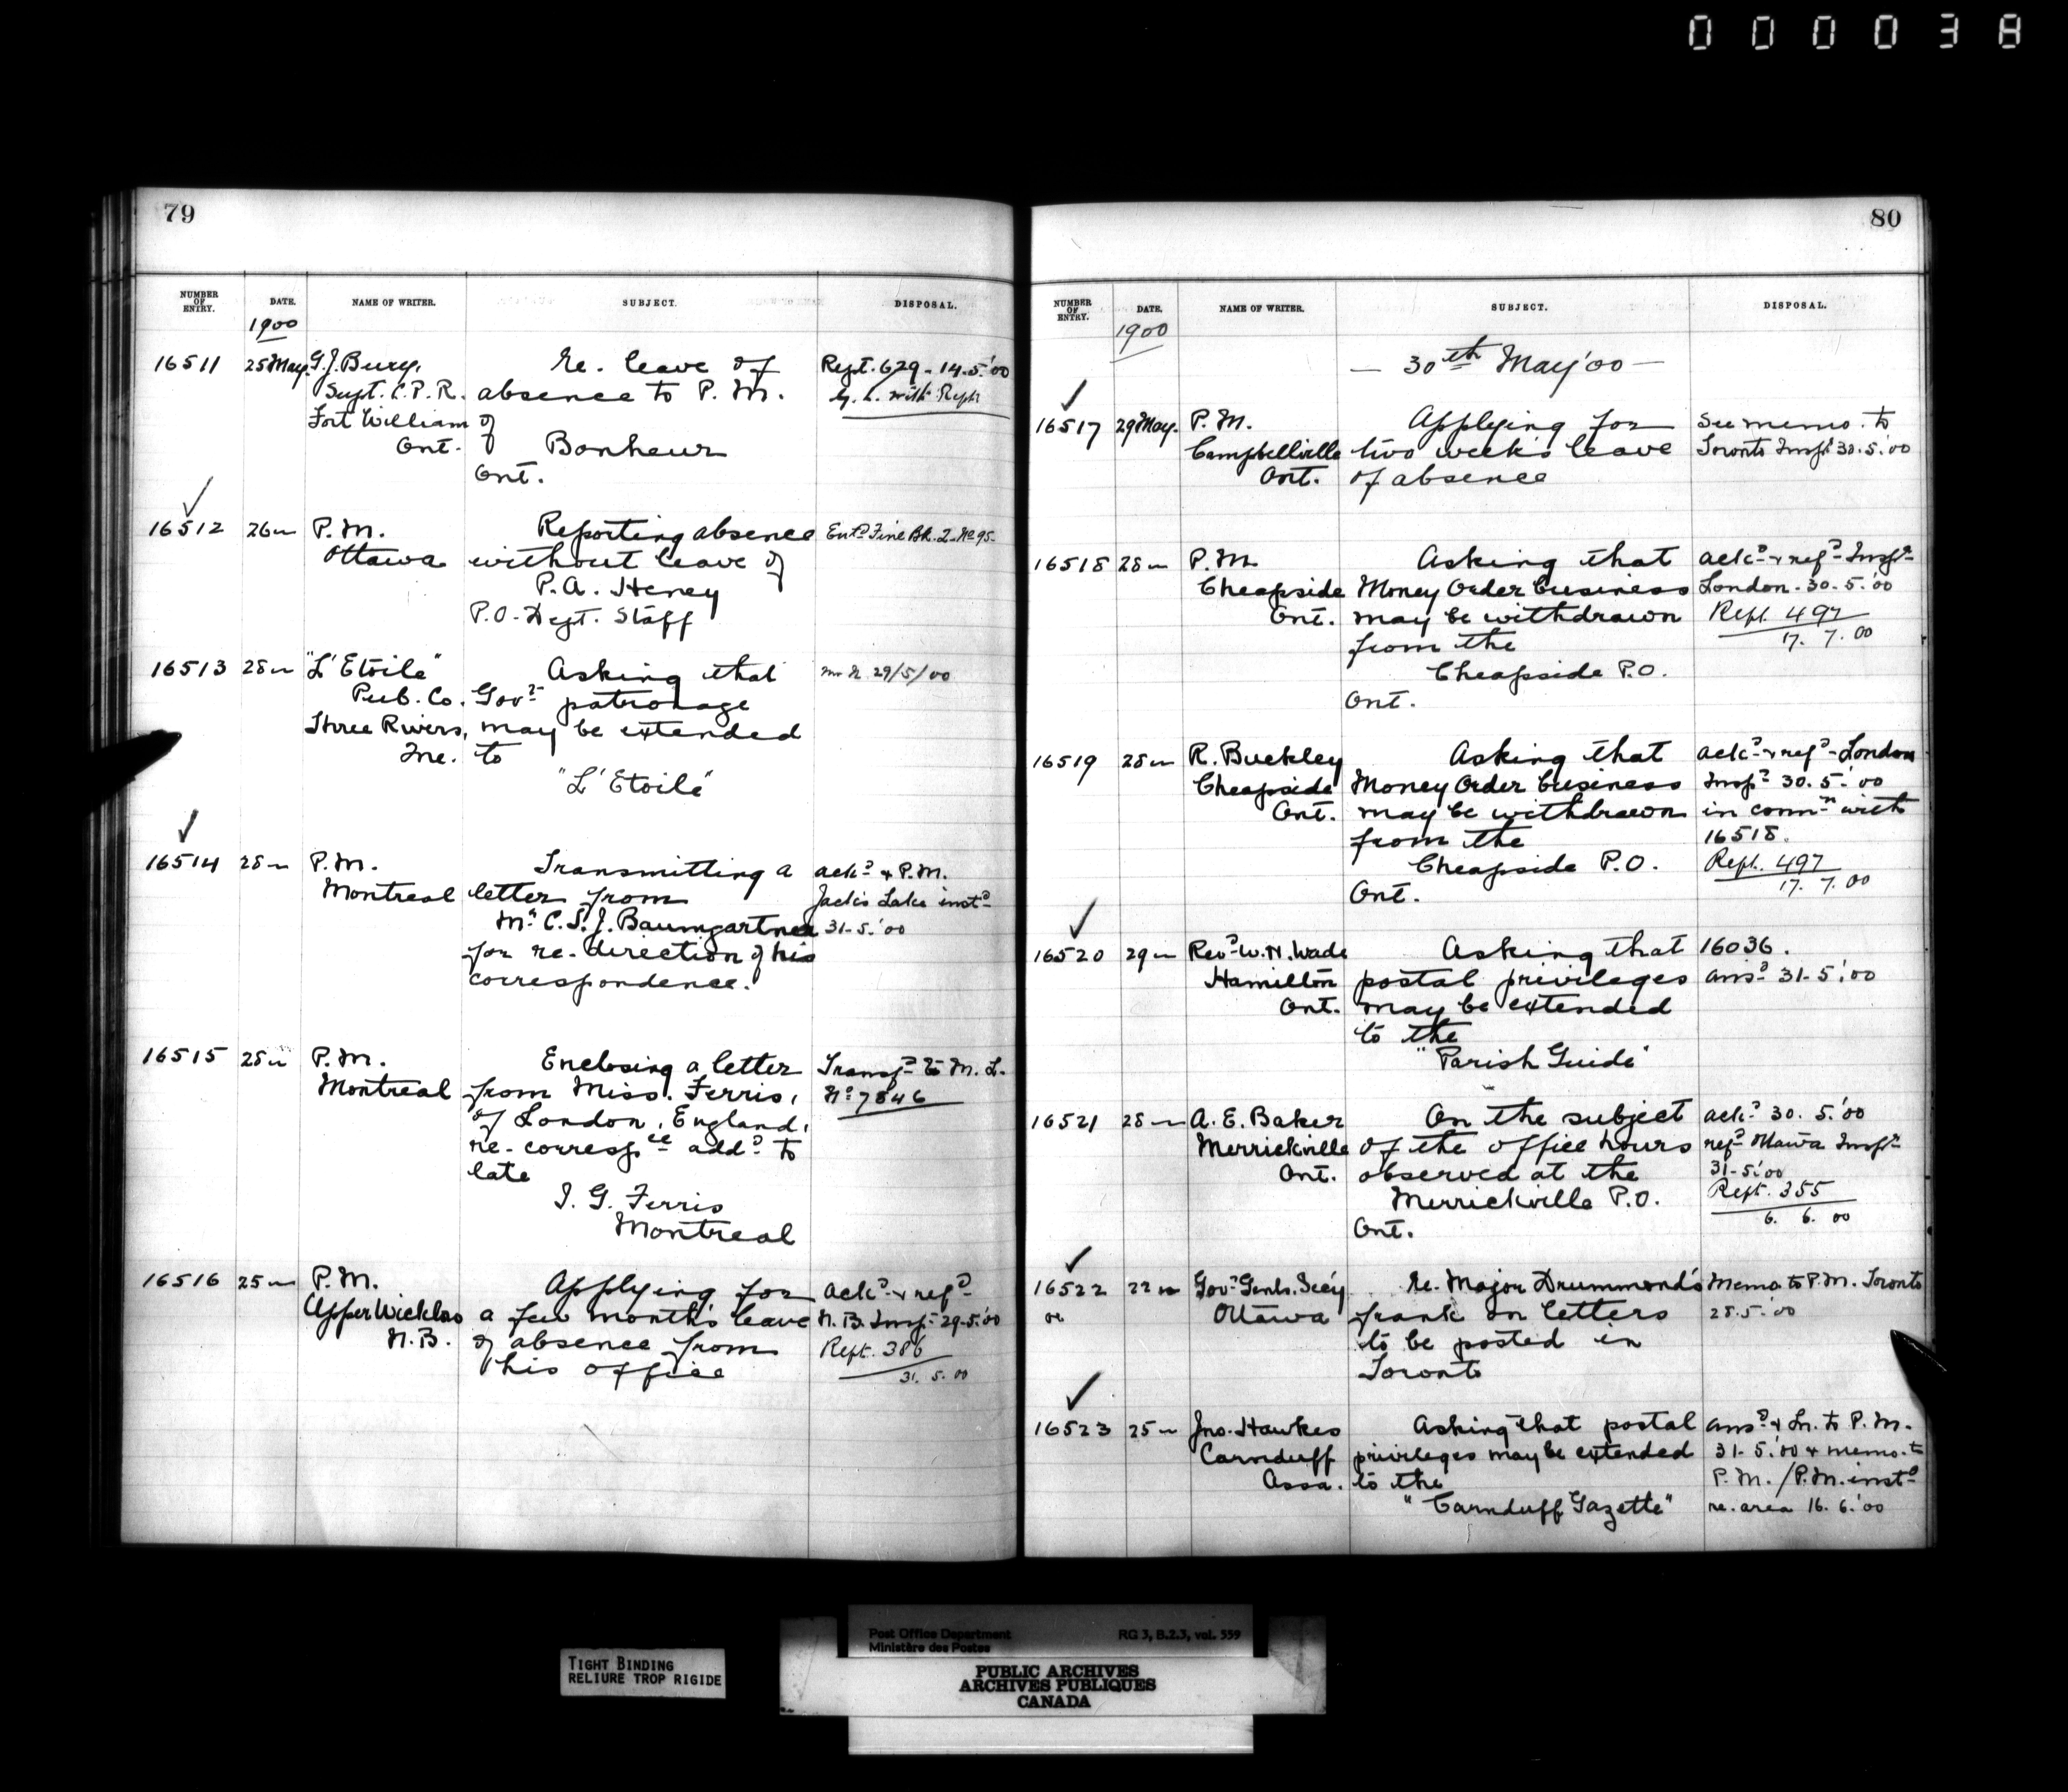 000038
79
NUMBER OF ENTRY. DATE. NAME OF WRITER. SUBJECT. DISPOSAL.
1900
16511 25 May. G.J. Bury, re. leave of Rept. 629 - 14.5.'00
Supt. C.P.R. absence to P.M. G.L. with Rept.
Fort William of
Ont. Bonheur
Ont.
16512 26 " P.M. Reporting absence Ent'd Fine Bk. 2 No 95
Ottawa without leave of
P.A. Heney
P.O. Dept. Staff
16513 28 " "L'Etoile" Asking that 29/5/00
Pub. Co. Gov't patronage
Three Rivers, may be extended
Que. to
"L'Etoile"
16514 28 " P.M. Transmitting a ack'd & P.M.
Montreal letter from Jack's Lake inst'd
Mr. C.S.J. Baumgartner 31-5.'00
for re-direction of his
correspondence.
16515 25 " P.M. Enclosing a letter Transf'd to M.L.
Montreal from Miss. Ferris, No 7846
of London, England,
re-corresp'ce add'd to
late
I.G. Ferris
Montreal
16516 25 " P.M. Applying for ack'd & ref'd
Upper Wicklow a few month's leave N.B. Insp. 29.5.'00
N.B. of absence from Rept. 386
his office 31. 5. 00
80
NUMBER OF ENTRY. DATE. NAME OF WRITER. SUBJECT. DISPOSAL.
1900
— 30th May '00 —
16517 29 May. P.M. Applying for See memo. to
Campbellville two week's leave Toronto Insp'r 30.5.'00
Ont. of absence
16518 28 " P.M. Asking that ack'd & ref'd Insp'r
Cheapside Money Order business London - 30-5.'00
Ont. may be withdrawn Rept. 497
from the 17. 7. 00
Cheapside P.O.
Ont.
16519 28 " R. Buckley Asking that ack'd & ref'd - London
Cheapside Money Order business Insp'r 30.5.'00
Ont. may be withdrawn in conn'n with
from the 16518.
Cheapside P.O. Rept. 497
Ont. 17. 7. 00
16520 29 " Rev'd W.H. Wade Asking that 16036.
Hamilton postal privileges ans'd 31-5.'00
Ont. may be extended
to the
"Parish Guide"
16521 28 " A.E. Baker On the subject ack'd 30. 5.'00
Merrickville of the office hours ref'd Ottawa Insp'r
Ont. observed at the 31-5.'00
Merrickville P.O. Rept. 355
Ont. 6. 6. 00
16522 22 " Gov'r Genls. Sec'y re. Major Drummond's Memo to P.M. Toronto
Ottawa frank on letters 28.5.'00
to be posted in
Toronto
16523 25 " Jno. Hawkes Asking that postal ans'd & Ln. to P.M.
Carnduff privileges may be extended 31-5.'00 & memo. to
Assa. to the P.M. / P.M. inst'd
"Carnduff Gazette" re. area 16. 6.'00
TIGHT BINDING
RELIURE TROP RIGIDE
Post Office Department RG 3, B.2.3, vol. 559
Ministère des Postes
PUBLIC ARCHIVES
ARCHIVES PUBLIQUES
CANADA